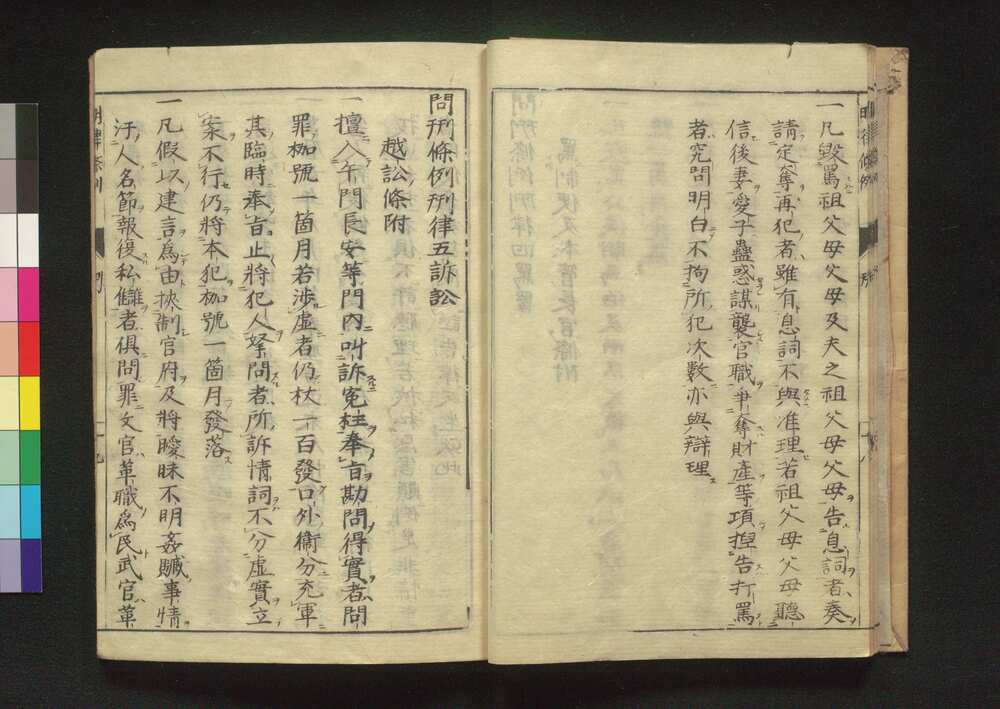 一凡毀罵祖父母父母及夫之祖父母父母告息詞者奏
請定奪再犯者雖有息詞不與准理若祖父母父母聽
信後妻愛子蠱惑謀襲官職爭奪財産等項揑告打罵
者究問明白不拘所犯次數亦與辯理
問刑條例刑律五訴訟
越訟條附
一擅入午門長安等門内叫訴寃枉奉旨勘問得實者問
罪枷號一箇月若涉虚者仍杖一百發口外衞分充軍
其臨時奉旨止將犯人拏問者所訴情詞不分虚實立
案不行仍將本犯枷號一箇月發落
一凡假以建言爲由挾制官府及將曖昧不明姦贓事情
汙人名節報復私讎者俱問罪文官革職爲民武官革